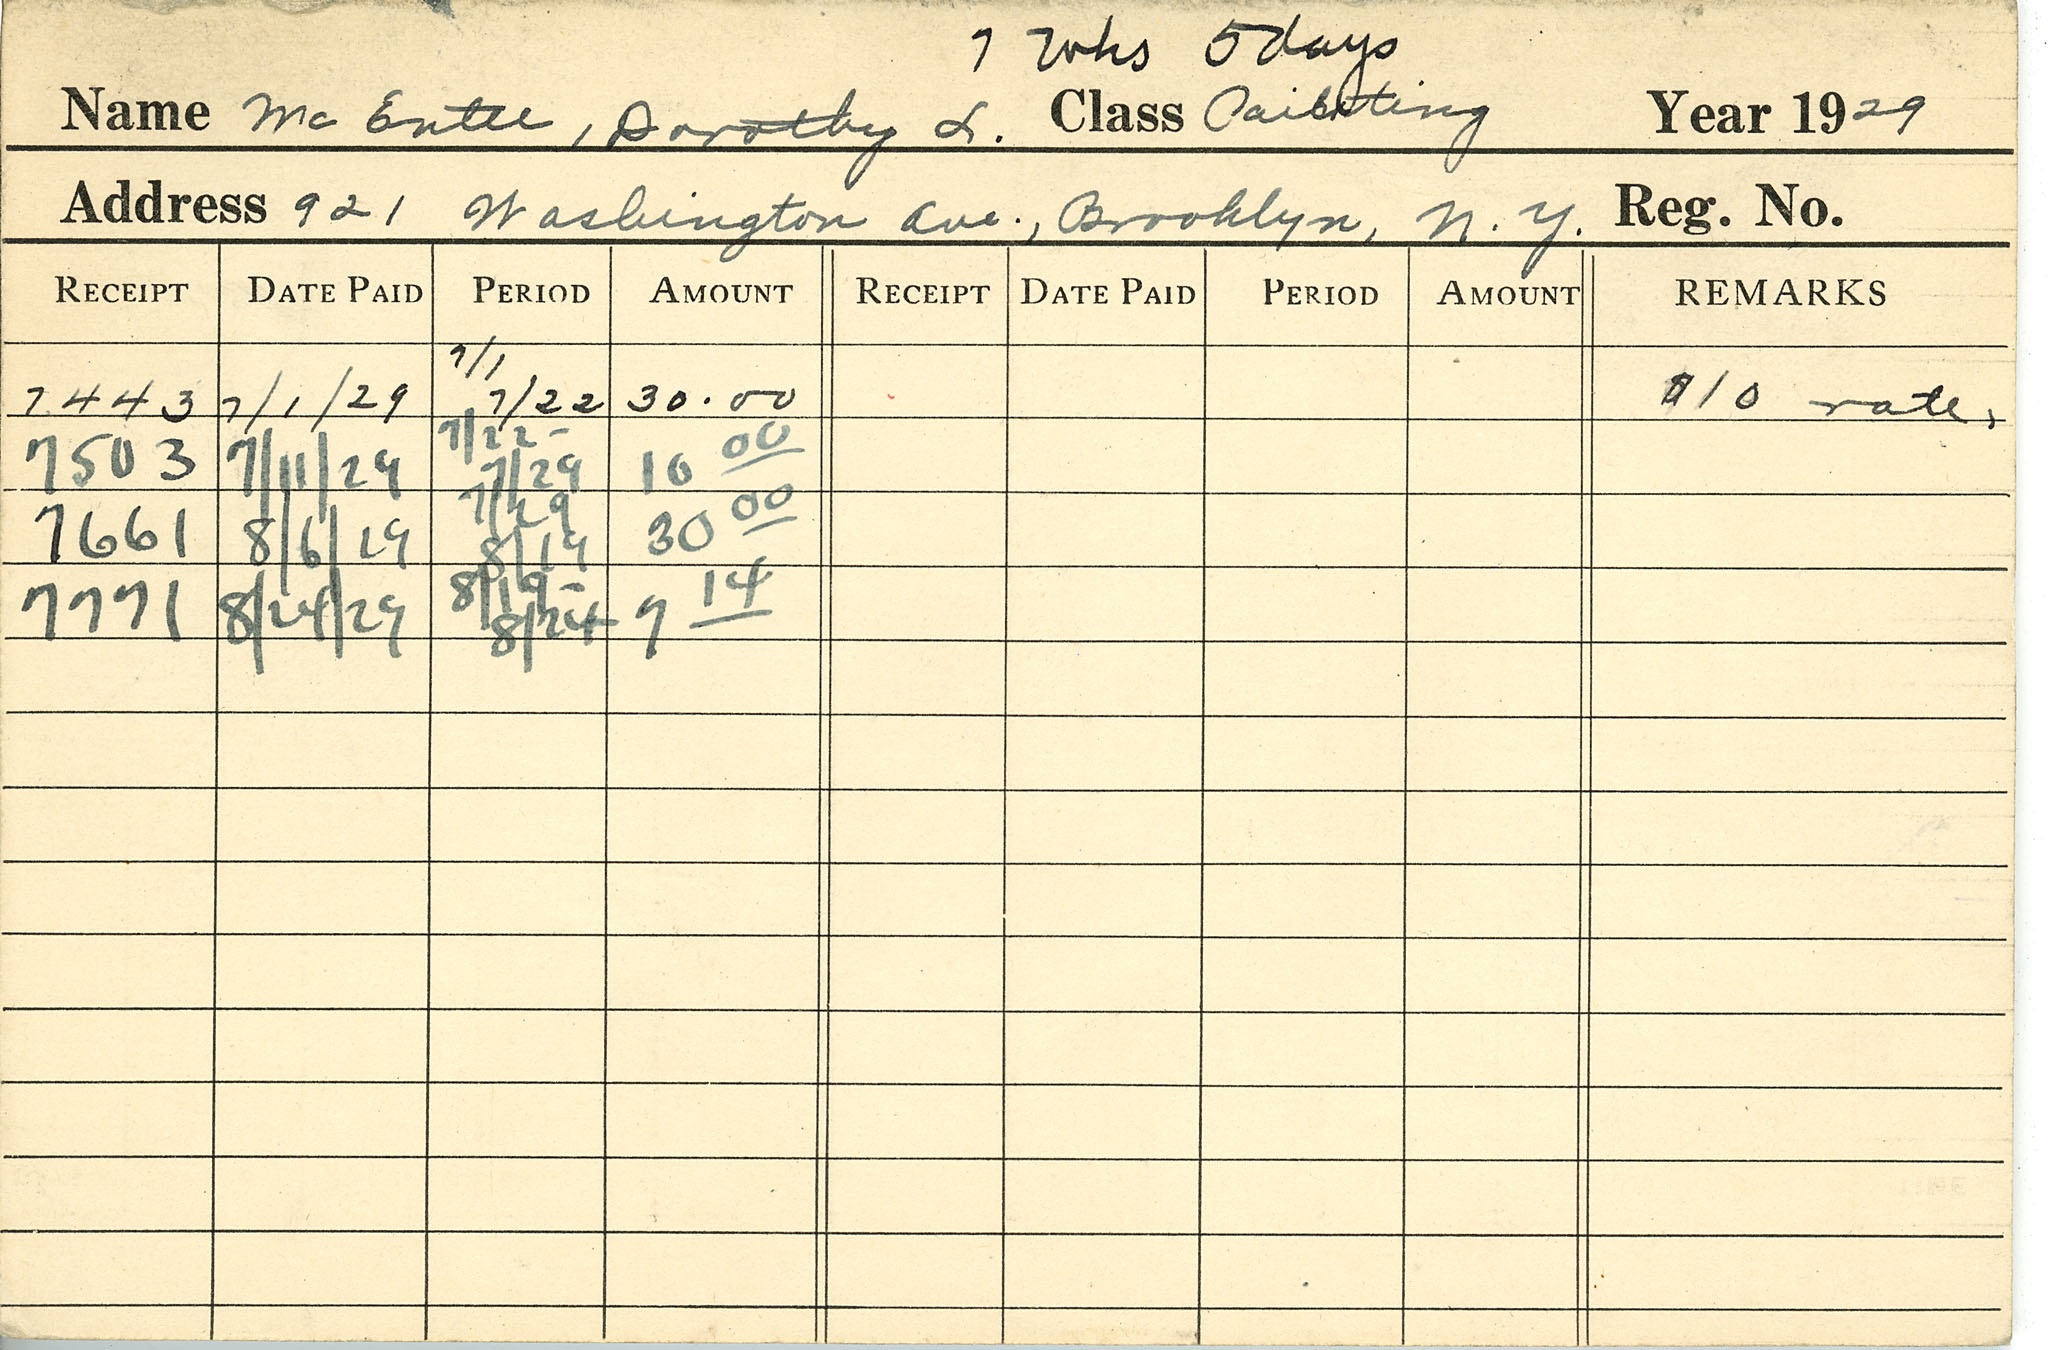 7 Wks 5 days
Name Mc Entee, Dorothy L. Class Painting Year 1929
Address 921 Washington Ave., Brooklyn, N. Y. Reg. No.
RECEIPT DATE PAID PERIOD AMOUNT RECEIPT DATE PAID PERIOD AMOUNT REMARKS
7443 7/1/29 7/1 7/22 30.00 $10 rate,
7503 7/11/29 7/22- 7/29 10 00
7661 8/6/29 7/29 8/19 30 00
7771 8/24/29 8/19- 8/24 7 14